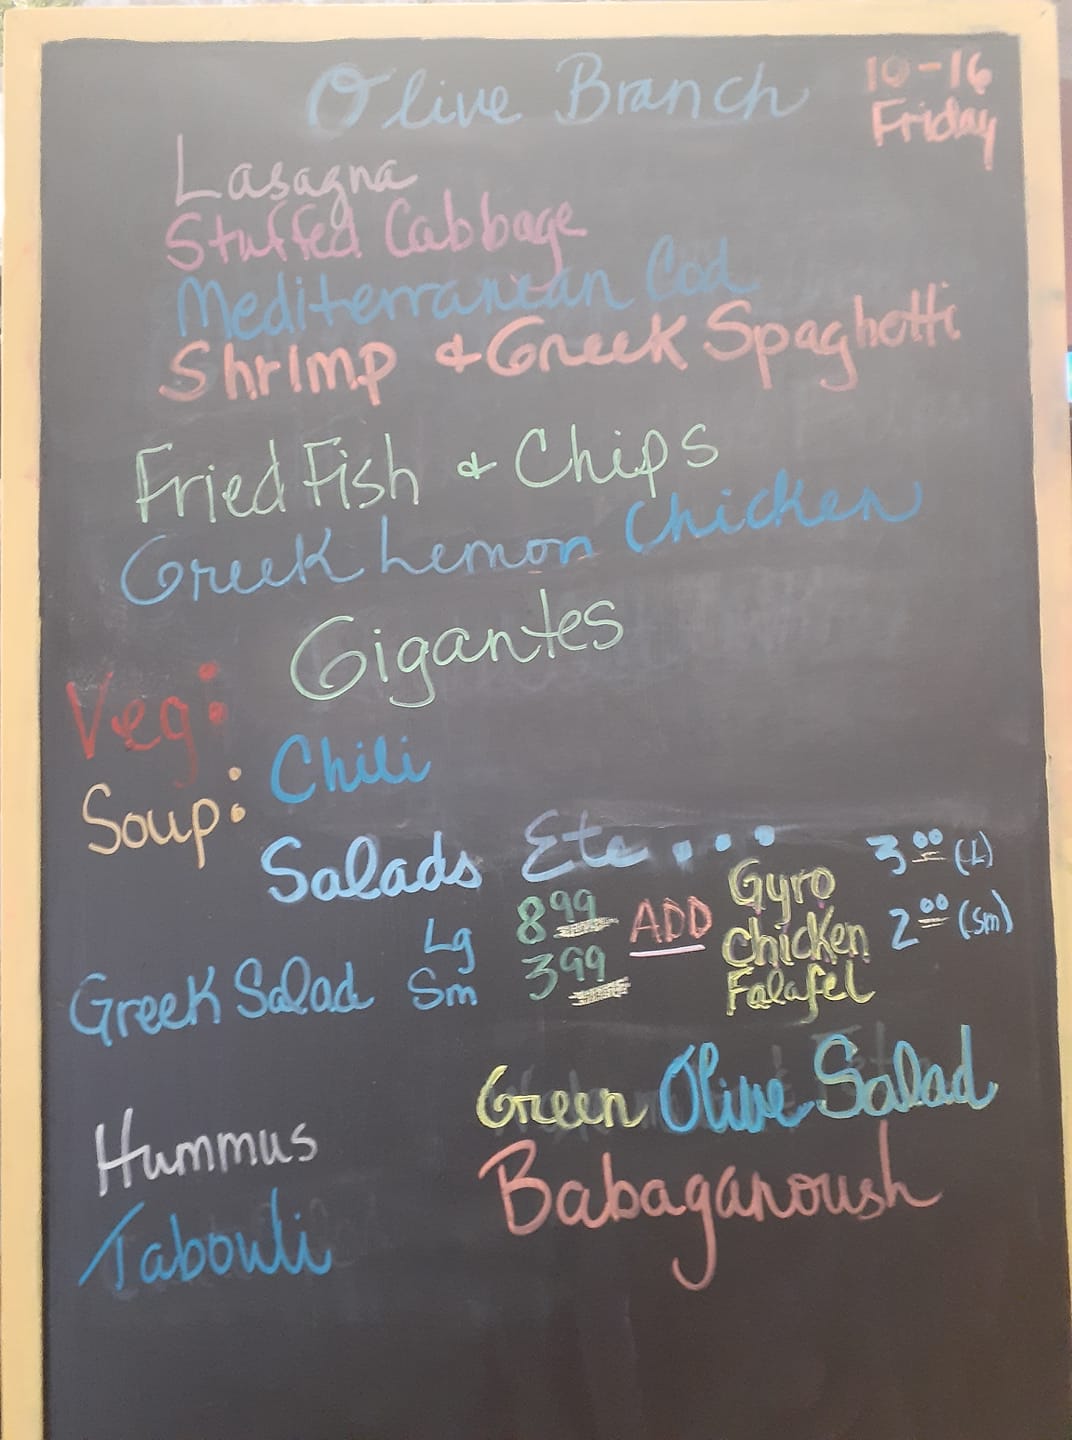 Olive Branch
10-16
Friday
Lasagna
Stuffed Cabbage
Mediterranean Cod
Shrimp & Greek Spaghetti
Fried Fish & Chips
Greek Lemon Chicken
Veg: Gigantes
Soup: Chili
Salads Etc...
Greek Salad Lg 8.99
Sm 3.99
ADD Gyro
Chicken
Falafel
3.00 (L)
2.00 (Sm)
Green Olive Salad
Hummus
Babaganoush
Tabouli